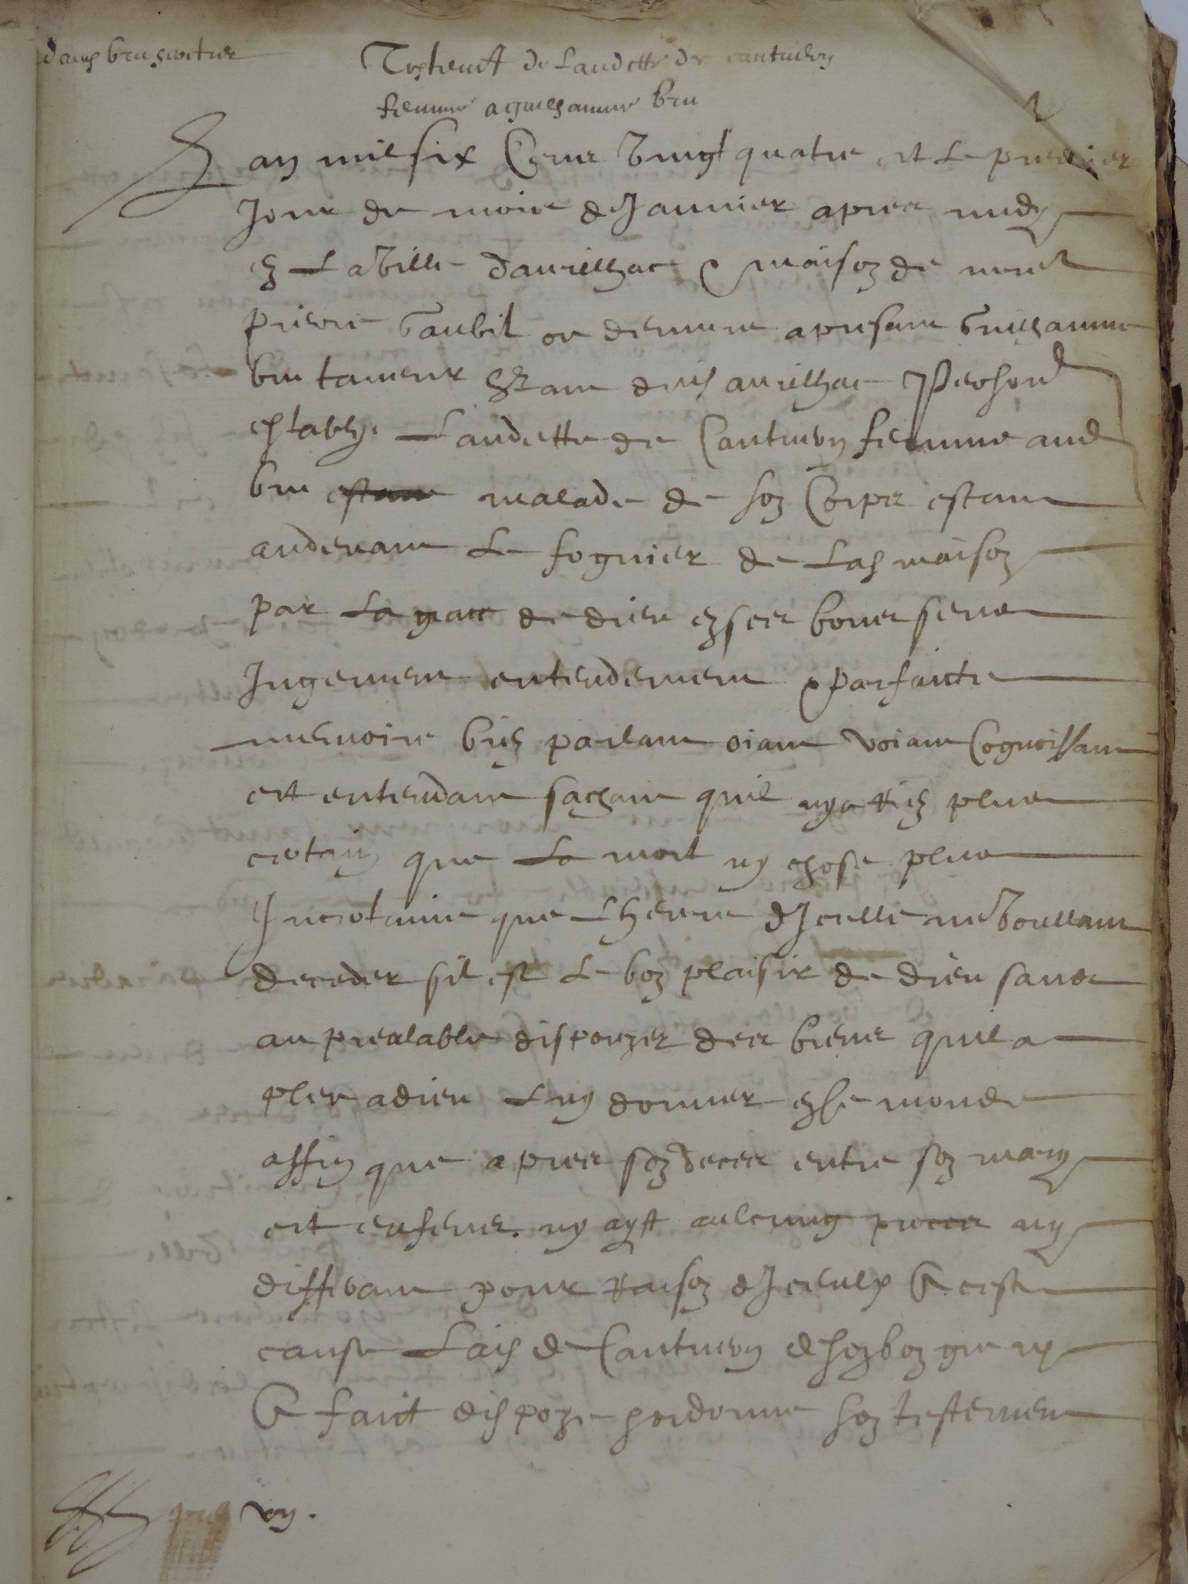 Testemt de Laudette de cantuern
femme a guilhaume bru
Lan mil six Cens vingt quatre et le premier
Jour du mois de Januier apres midy
en La ville daurilhac & maison de
Gaubil ou demeure a presant Guilhaume
bru tameur dud aurilhac Person
establye Laudette de Cantuern femme aud
bru estant malade de son Corps estant
audeuant Le fognier de Lad maison
par La grace de dieu en ses bons sens
Jugement entendement & parfaicte
memoire bien parlant oiant voiant Cognoissant
et entendant sachant quil nya rien plus
certain que La mort ny chose plus
Incertaine que Lheure dJcelle ne voullant
deceder sil est Le bon plaisir de dieu sans
au prealable dispouzer des biens quil a
pleu a dieu Luy donner en ce monde
affin que apres son deces entre son mary
et enfens ny aytt aulcung proces ny
differant pour raison dJceulx A ceste
cause Lad de Cantuern de son bon gre
A faict dispoze & ordonne son testement